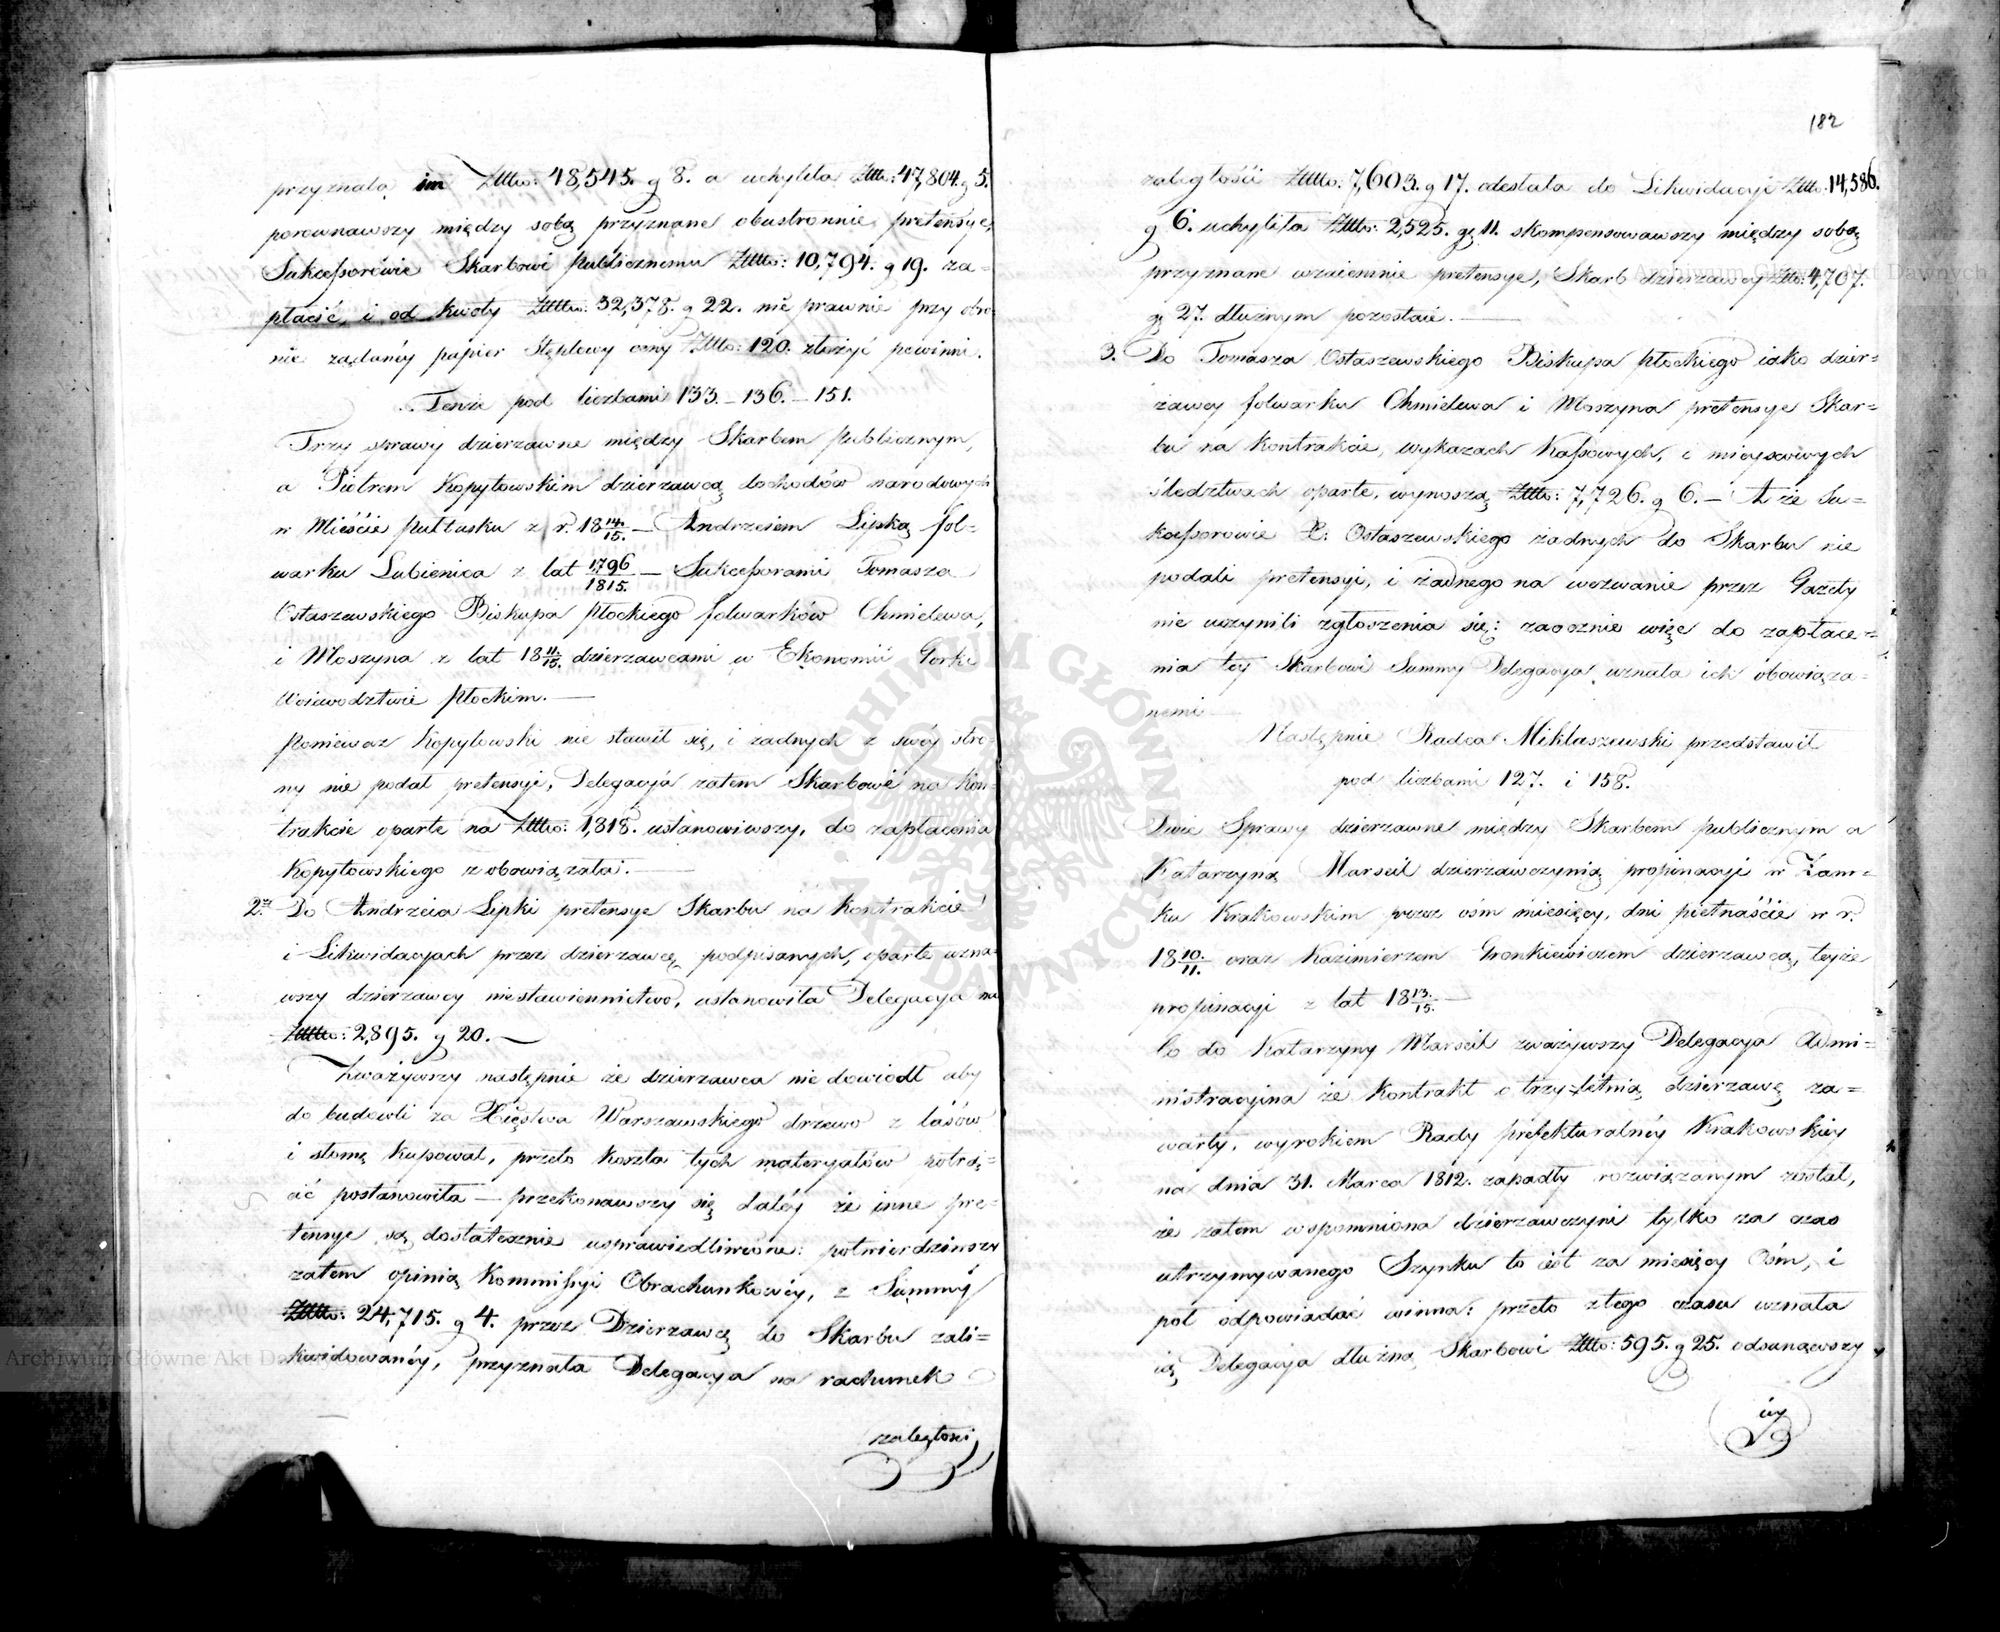 przyznała im Złttw: 48,545. g 8. a uchyliła Złttw: 47,804. g 5.
porównawszy między sobą przyznane obustronnie pretensye,
Sukcessorowie Skarbowi publicznemu Złttw: 10,794. g 19. za=
płacić, i od kwoty Złttw: 32,378. g 22. nie prawnie przy obro=
nie żądanéy papier stęplowy ceny Złttw: 120. złożyć powinni.
Tenże pod liczbami 133. – 136. – 151.
Trzy sprawy dzierzawne między Skarbem publicznym,
a Piotrem Kopytowskim dzierzawcą dochodów narodowych
w Mieście Pułtusku z r. 18 14/15. – Andrzeiem Lipką fol=
warku Lubienica z lat 1796/1815. – Sukcessorami Tomasza
Ostaszewskiego Biskupa Płockiego folwarków Chmielewa,
i Moszyna z lat 18 11/15. dzierzawcami w Ekonomii Gorki
Woiewodztwie Płockim. –
Ponieważ Kopytowski nie stawił się, i żadnych z swéy stro=
ny nie podał pretensyi, Delegacya zatem Skarbowe na kon=
trakcie oparte na Złttw: 1,818. ustanowiwszy, do zapłacenia
Kopytowskiego zobowiązała. –
2re Do Andrzeia Lipki pretensye Skarbu na kontrakcie
i Likwidacyach przez dzierzawcę podpisanych, oparte uzna=
wszy dzierzawcy niestawiennictwo, ustanowiła Delegacya na
Złttw: 2,895. g 20. –
Zważywszy następnie że dzierzawca nie dowiódł aby
do budowli za Xięstwa Warszawskiego drzewo z lasów
i słomę kupował, przeto koszta tych materyałów potrą=
cić postanowiła – przekonawszy się daléy że inne pre=
tensye są dostatecznie usprawiedliwione: potwierdziwszy
zatem opinią Kommissyi Obrachunkowéy, z Summy
Złttw: 24,715. g 4. przez Dzierzawcę do Skarbu zali=
kwidowanéy, przyznała Delegacya na rachunek
zaległości
182
zaległości Złttw: 7,603. g 17. odesłała do Likwidacyi Złttw: 14,586.
g 6. uchyliła Złttw: 2,525. g 11. skompensowawszy między sobą
przyznane wzaiemnie pretensye, Skarb dzierzawcy Złttw: 4,707.
g 27. dłużnym pozostaie. –
3. Do Tomasza Ostaszewskiego Biskupa Płockiego iako dzier=
żawcy folwarku Chmielewa i Moszyna pretensye Skar=
bu na kontrakcie, wykazach Kassowych, i mieyscowych
śledztwach oparte, wynoszą Złttw: 7,726. g 6. – A że Su=
kcessorowie X: Ostaszewskiego żadnych do Skarbu nie
podali pretensyi, i żadnego na wezwanie przez Gazety
nie uczynili zgłoszenia się: zaocznie więc do zapłace=
nia tey Skarbowi Summy Delegacya uznała ich obowiąza=
nemi –
Następnie Radca Miklaszewski przedstawił
pod liczbami 127. i 158.
Dwie Sprawy dzierzawne między Skarbem publicznym a
Katarzyną Marseil dzierzawczynią propinacyi w Zam=
ku Krakowskim przez ośm miesięcy, dni piętnaście w r.
18 10/11. oraz Kazimierzem Gronkiewiczem dzierzawcą teyże
propinacyi z lat 18 13/15. –
Co do Katarzyny Marseil zważywszy Delegacya Admi=
nistracyina że Kontrakt o trzy-letnią dzierzawę za=
warty, wyrokiem Rady prefekturalnéy Krakowskiéy
na dniu 31. Marca 1812. zapadłym rozwiązanym został,
że zatem wspomniona dzierzawczyni tylko za czas
utrzymywanego Szynku to iest za miesięcy Ośm, i
pół odpowiadać winna: przeto z tego czasu uznała
ią Delegacya dłużną Skarbowi Złttw: 595. g 25. odsunąwszy
iéy